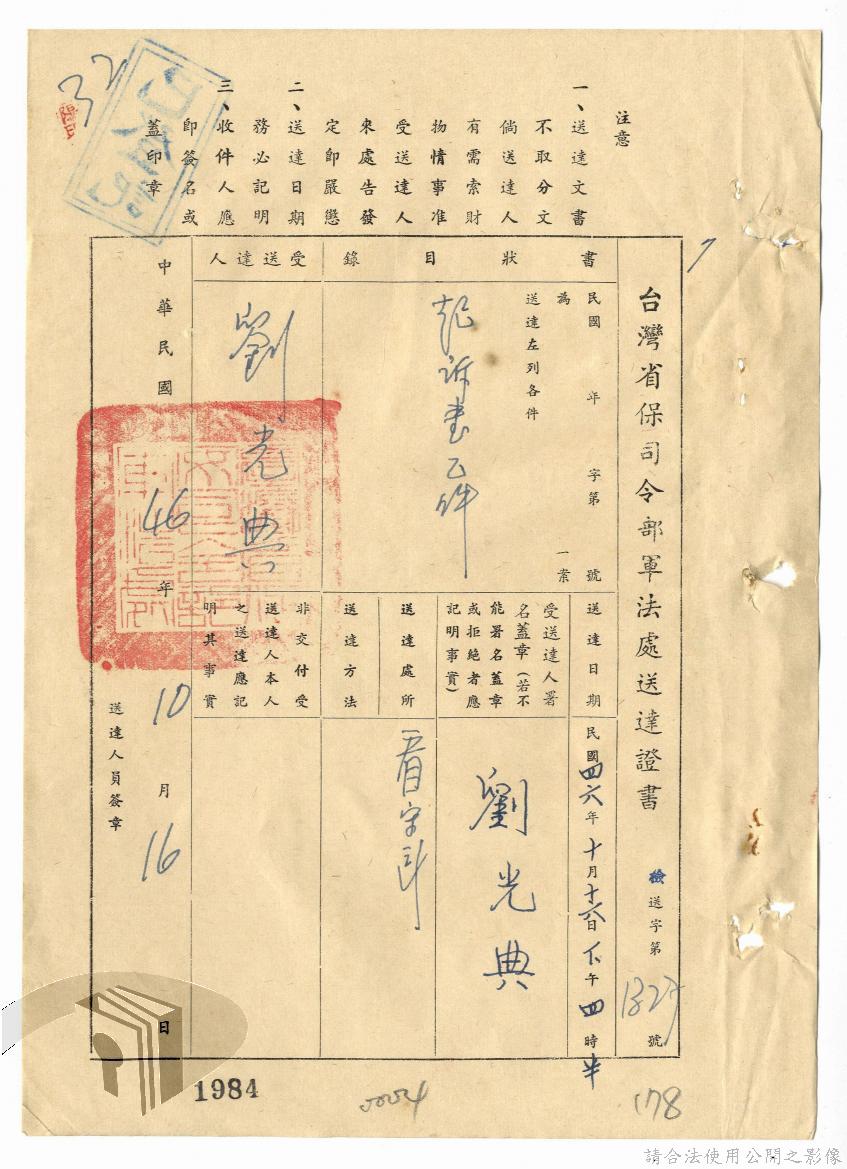 注意
一、送達文書
不取分文
倘送達人
有需索財
物情事准
受送達人
來處告發
定即嚴懲
二、送達日期
務必記明
三、收件人應
即簽名或
蓋印章
32
7
台灣省保司令部軍法處送達證書
檢送字第1327號
書狀目錄
民國 年 字第 號
為 一案
送達左列各件
起訴書乙件
受送達人
劉光典
送達日期
民國四六年十月十六日下午四時半
受送達人署
名蓋章(若不
能署名蓋章
或拒絕者應
記明事實)
劉光典
送達處所
看守所
送達方法
非交付受
送達人本人
之送達應記
明其事實
中華民國46年10月16日
送達人員簽章
1984
178
請合法使用公開之影像